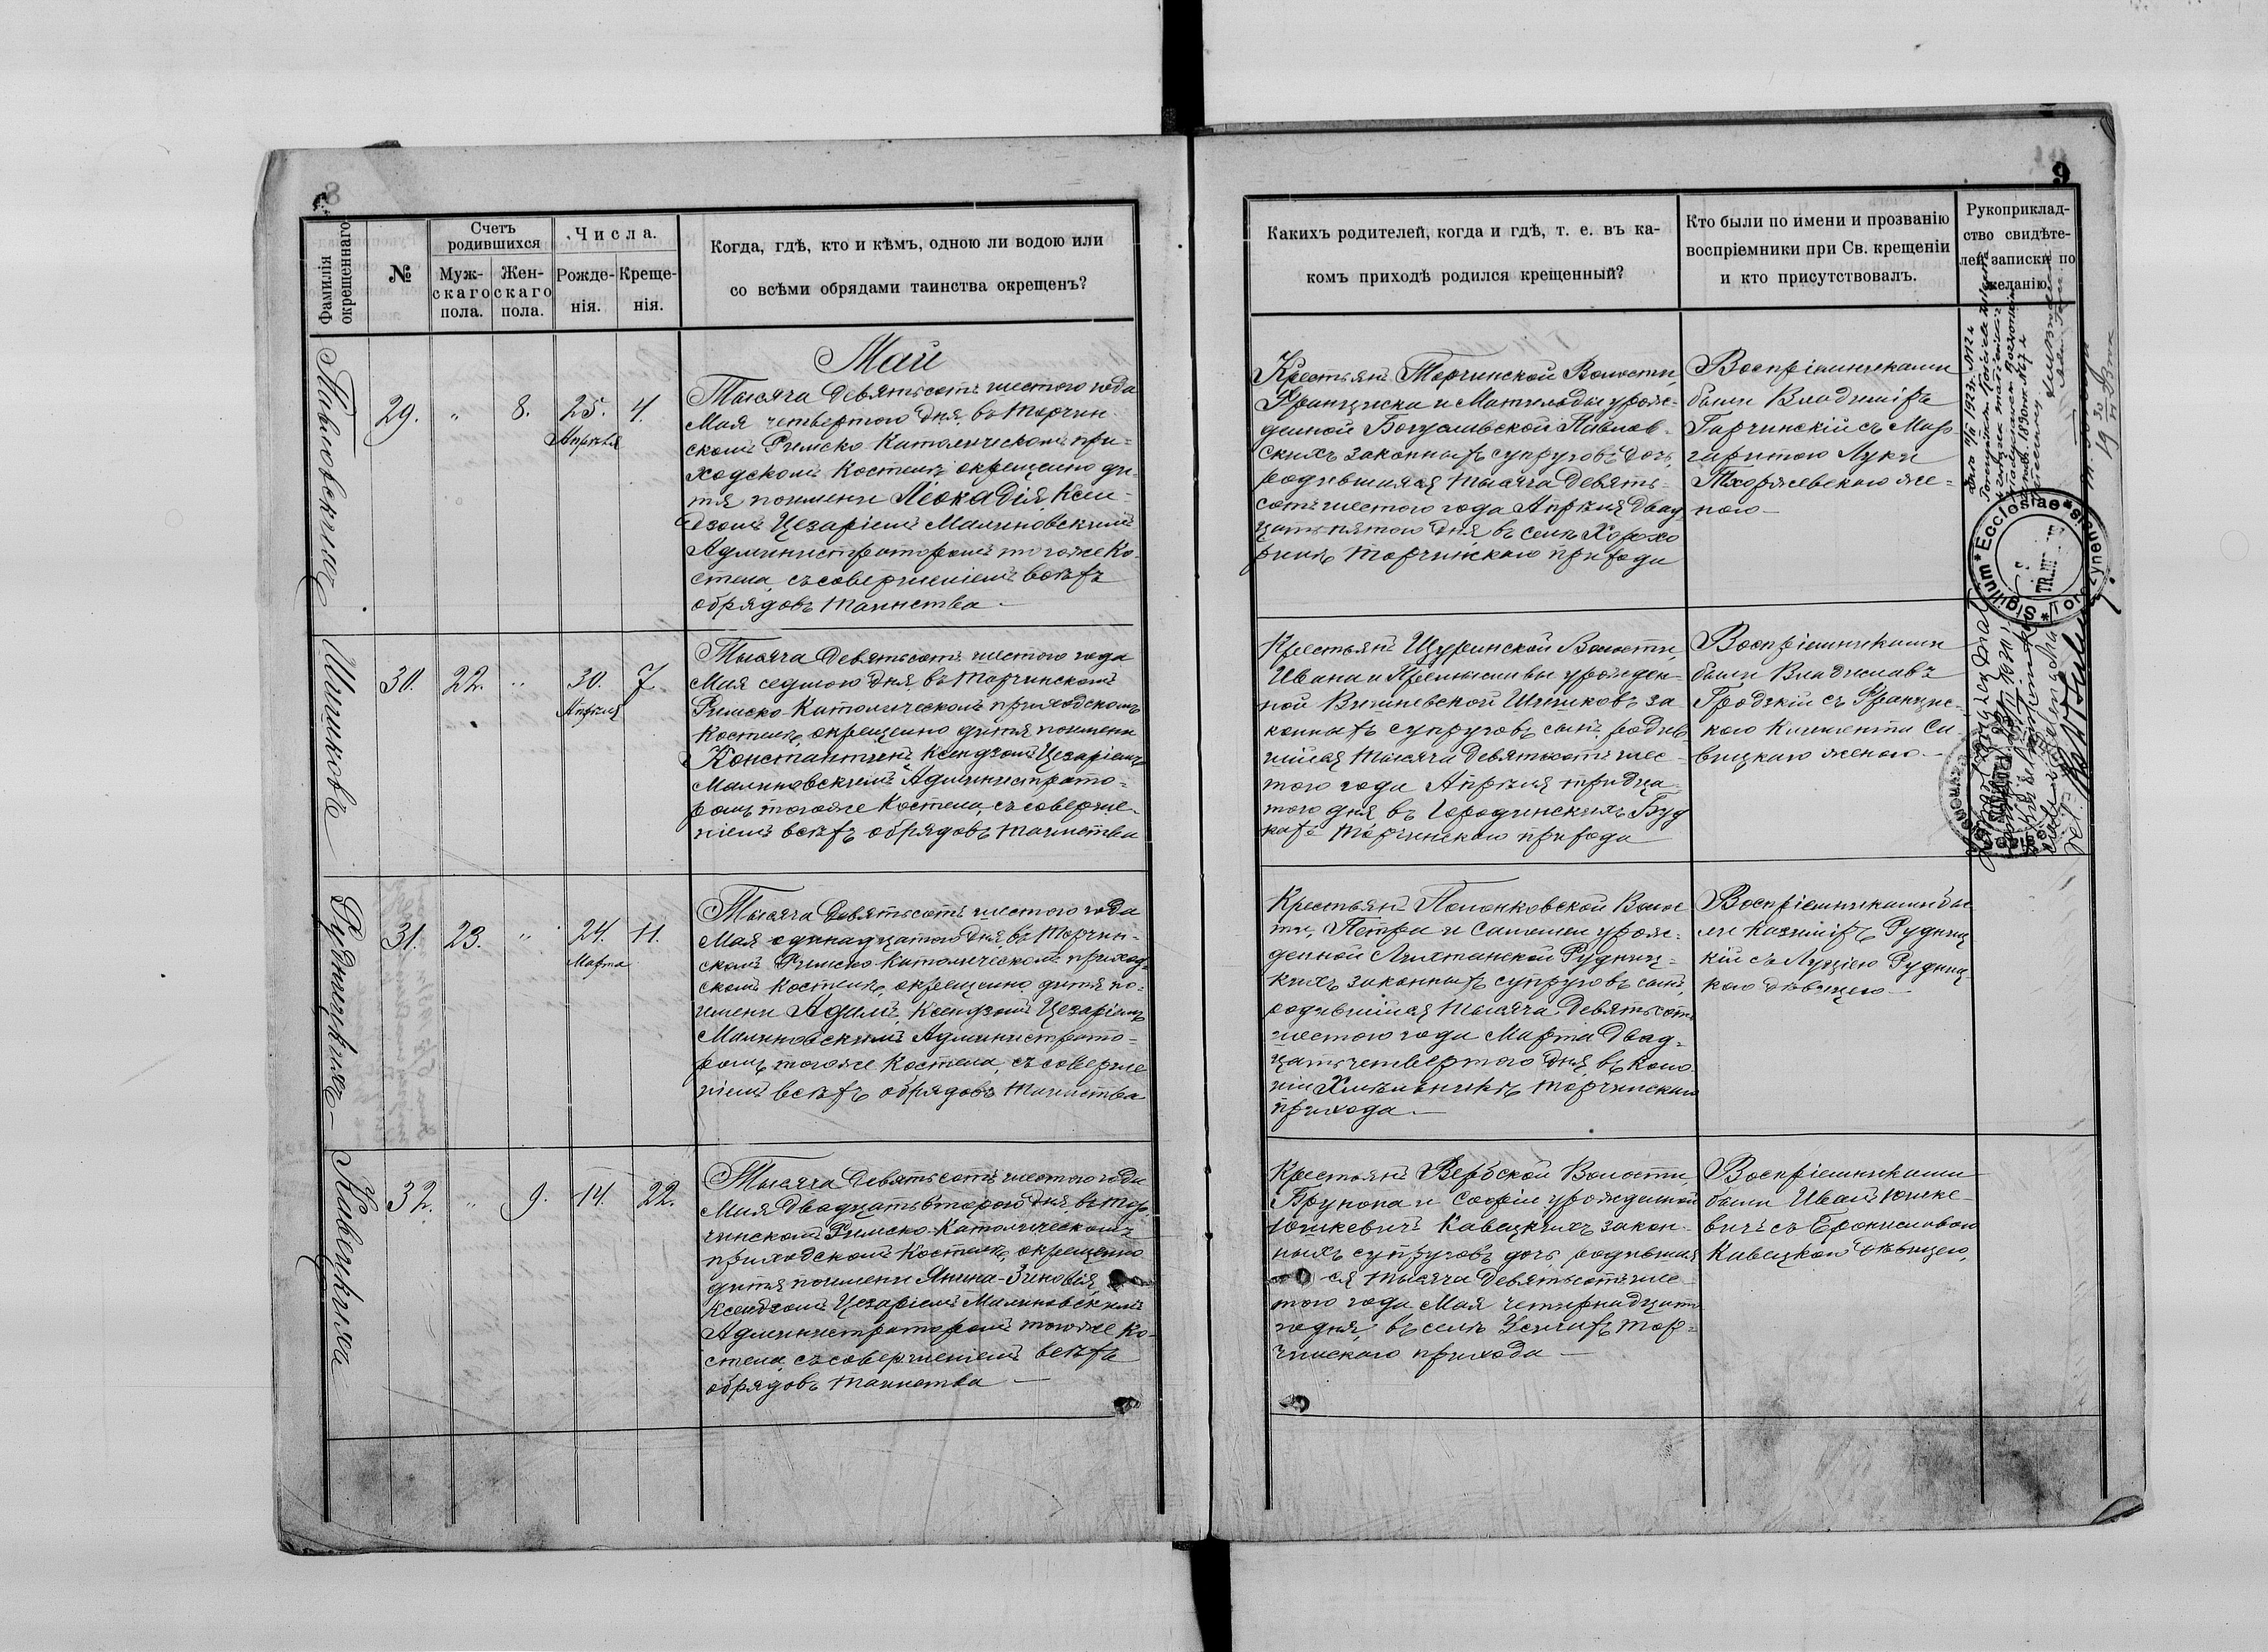 8
Фамилія
окрещеннаго
№
Счетъ
родившихся
Муж-
скаго
пола.
Жен-
скаго
пола.
Числа.
Рожде-
нія.
Креще-
нія.
Когда, гдѣ, кто и кѣмъ, одною ли водою или
со всѣми обрядами таинства окрещенъ?
Май
Павловскихъ
29. " 8. 25. 4.
Апрѣля
Тысяча девятьсотъ шестого года
Мая четвертого дня въ Торчин-
скомъ Римско Католическомъ при-
ходскомъ Костелѣ окрещено ди-
тя поимени Леокадія, Ксен-
дзомъ Цезаріемъ Малиновскимъ
Администраторомъ тогоже Ко-
стела, съ совершеніемъ всѣхъ
обрядовъ таинства
Шишковъ
30. 22. " 30. 7.
Апрѣля
Тысяча девятьсотъ шестого года
Мая седмого дня въ Торчинскомъ
Римско-Католическомъ приходскомъ
Костелѣ, окрещено дитя поимени
Константинъ Ксендзомъ Цезаріемъ
Малиновскимъ Администрато-
ромъ тогоже Костела, съ соверше-
ніемъ всѣхъ обрядовъ таинства
Рудницкихъ
31. 23. " 24. 11.
Марта
Тысяча девятьсотъ шестого года
Мая одинадцатого дня, въ Торчин-
скомъ Римско Католическомъ приход-
скомъ Костелѣ, окрещено дитя по-
имени Адамъ, Ксендзомъ Цезаріемъ
Малиновскимъ Администрато-
ромъ тогоже Костела, съ соверше
ніемъ всѣхъ обрядовъ таинства
Кавецкихъ
32. " 9. 14. 22.
Тысяча девятьсотъ шестого года
Мая двадцатьвторого дня, въ Тор
чинскомъ Римско-Католическомъ
приходскомъ Костелѣ, окрещено
дитя поимени Янина-Зиновія,
Ксендзомъ Цезаріемъ Малиновскимъ
Администраторомъ тогоже Ко-
стела, съ совершеніемъ всѣхъ
обрядовъ таинства
9
Какихъ родителей, когда и гдѣ, т. е. въ ка-
комъ приходѣ родился крещенный?
Кто были по имени и прозванію
воспріемники при Св. крещеніи
и кто присутствовалъ.
Рукоприклад-
ство свидѣте-
лей записки по
желанію.
Крестьянъ Торчинской Волости,
Франциска и Матильды урож-
денной Богуславской Павлов-
скихъ законныхъ супруговъ дочь,
родившаяся тысяча девять-
сотъ шестого года Апрѣля двад-
цатьпятого дня въ селѣ Хорохо
ринѣ Торчинскаго прихода
Воспріемниками
были Владиміръ
Гарчинскій съ Мар-
гаритою Луки
Тхоржевскаго же-
ною
Крестьянъ Щуринской Волости,
Ивана и урожден-
ной Вишневской Шишковъ за
конныхъ супруговъ сынъ, родив
шійся тысяча девятьсотъ шес
того года Апрѣля тридца-
того дня въ Городинскихъ Буд
кахъ Торчинскаго прихода
Воспріемниками
были Владиславъ
Гродзкій съ Францис-
кою Климента Са
вицкаго женою
Крестьянъ Полонковской Волос
ти, Петра и Саломеи урож-
денной Рудниц-
кихъ законныхъ супруговъ сынъ,
родившійся тысяча девятьсотъ
шестого года Марта двад-
цатьчетвертого дня въ коло
ніи Торчинскаго
прихода
Воспріемниками бы
ли Казиміръ Рудниц
кій съ Луціею Рудниц-
кою дѣвицею
Крестьянъ Вербской Волости,
Брунона и Софіи урожденной
Юшкевичъ Кавецкихъ закон-
ныхъ супруговъ дочь, родивша
ся тысяча девятьсотъ шес
того года Мая четырнадцата
го дня, въ селѣ Усичахъ Тор-
чинскаго прихода
Воспріемниками
были Иванъ Юшке-
вичъ съ Брониславою
Кавецкою дѣвицею,